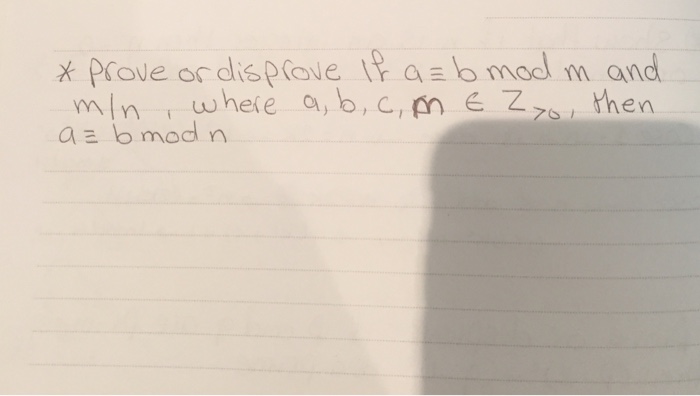 * prove or disprove If a ≡ b mod m and
m|n , where a, b, c, m ∈ Z>0, then
a ≡ b mod n